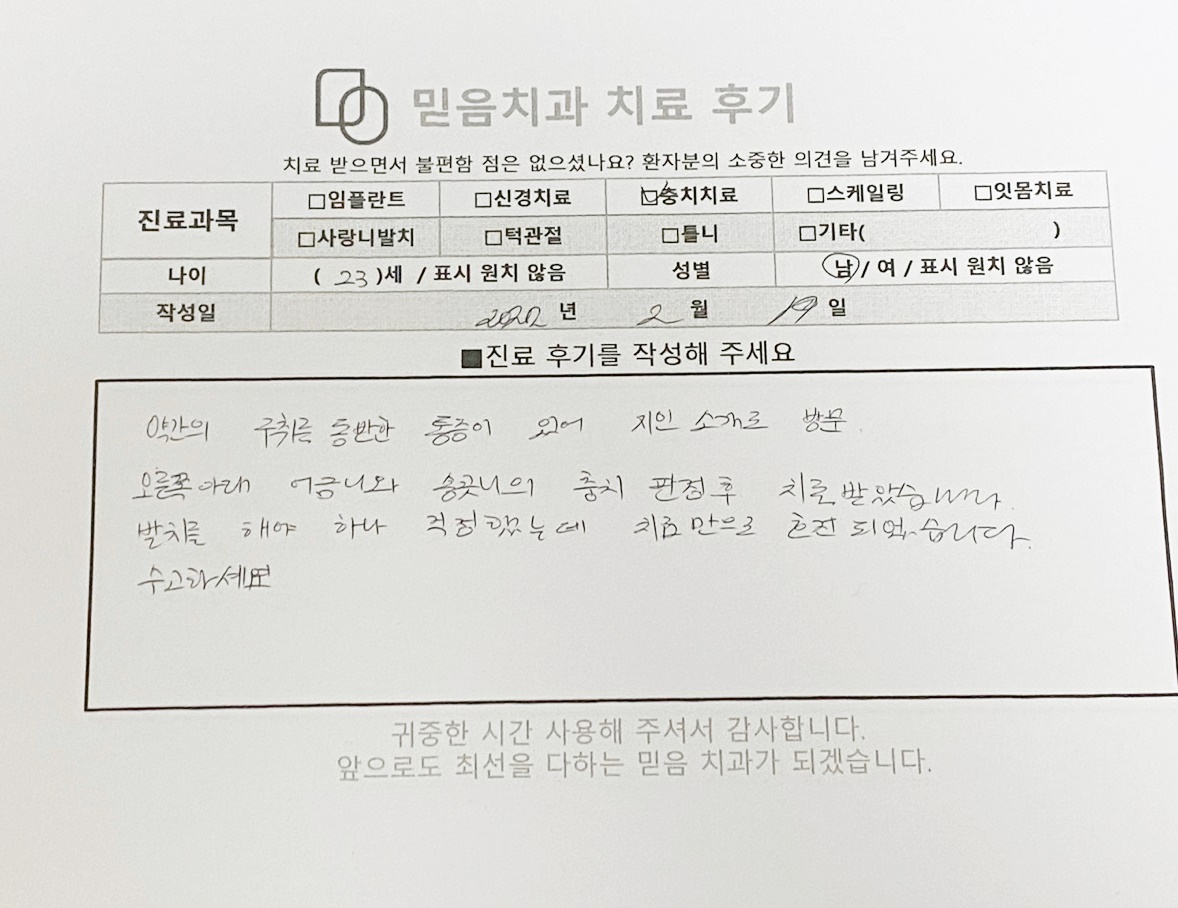 믿음치과 치료 후기
치료 받으면서 불편함 점은 없으셨나요? 환자분의 소중한 의견을 남겨주세요.
진료과목 □임플란트 □신경치료 ☑충치치료 □스케일링 □잇몸치료
□사랑니발치 □턱관절 □틀니 □기타( )
나이 ( 23 )세 / 표시 원치 않음 성별 남 / 여 / 표시 원치 않음
작성일 2022 년 2 월 19 일
■진료 후기를 작성해 주세요
약간의 구취를 동반한 통증이 있어 지인 소개로 방문.
오른쪽 아래 어금니와 송곳니의 충치 판정 후 치료 받았습니다.
발치를 해야 하나 걱정했는데 치료만으로 호전 되었습니다.
귀중한 시간 사용해 주셔서 감사합니다.
앞으로도 최선을 다하는 믿음 치과가 되겠습니다.